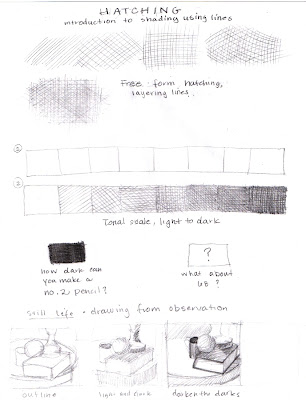 HATCHING
introduction to shading using lines
Free form hatching,
layering lines.
①
②
Tonal scale, light to dark
how dark can
you make a
no. 2 pencil?
?
what about
6B?
Still Life - drawing from observation
outline
light and dark
darken the darks